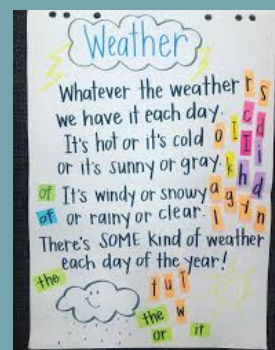 Weather
Whatever the weather r s
we have it each day. c d
It's hot or it's cold o I I i
or it's sunny or gray. k h d
of It's windy or snowy a g y n
of or rainy or clear. l
There's SOME kind of weather
each day of the year!
the t u T
the w
or it